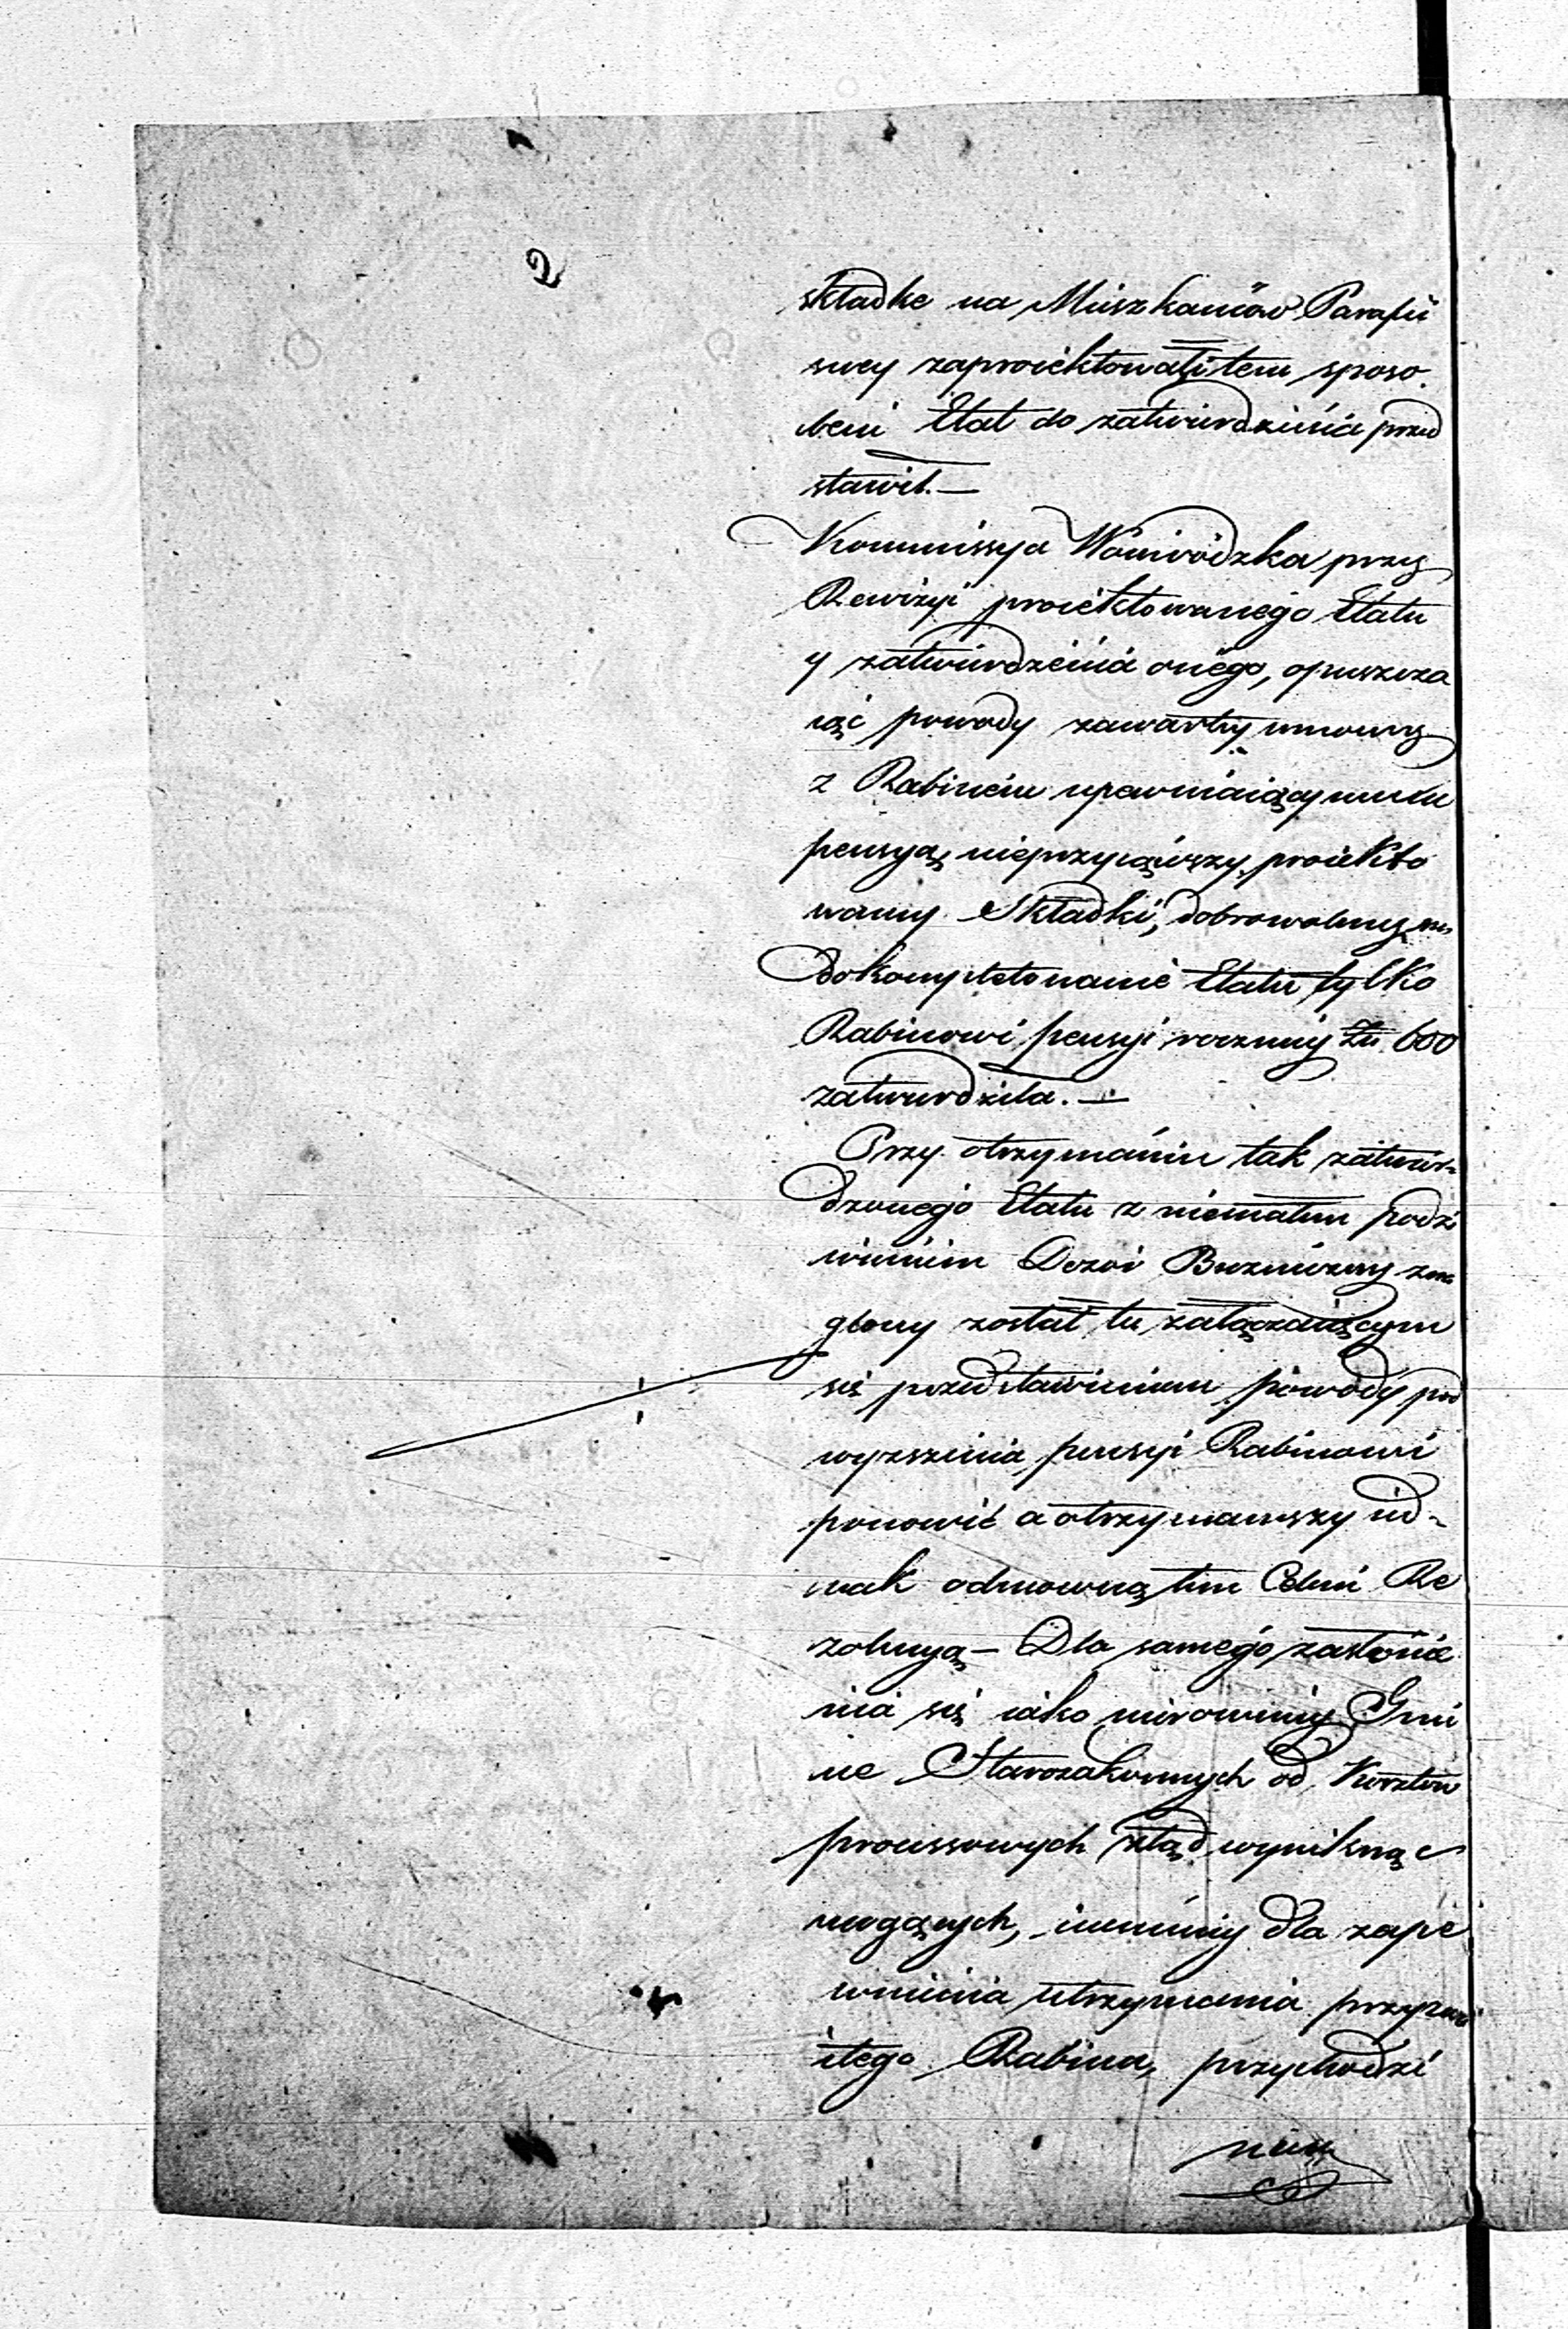 2
składke na Mieszkańców Parafii
swey zaproiektował i tem sposo-
bem Etat do zatwierdzenia przed
stawił.—
Kommissya Woiewódzka przy
Rewizyi proiektowanego Etatu
y zatwierdzenia onego, opuszcza
iąc powody zawartey umowy
z Rabinem upewniaiącym mu
pensyą, nieprzyiąwszy proiekto
waney Składki, dobrowolney na
dokompletowanie Etatu tylko
Rabinowi pensyi roczney Złł 600
zatwierdziła.—
Przy otrzymaniu tak zatwier-
dzonego Etatu z niemałem podzi
wieniem Dozór Bużniczny zna
glony został, tu załączaiącym
się przedstawieniem powody pod
wyższenia pensyi Rabinowi
ponowić a otrzymawszy ied-
nak odmowną tem Celem Re
zolucyą — Dla samego zasłonie
nia się iako mierowney Gmi
ne Starozakonnych od Kosztów
processowych ztąd wyniknąć
mogących, iuemniey dla zape
wnienia utrzymania przyzwo
itego Rabina, przychodzi